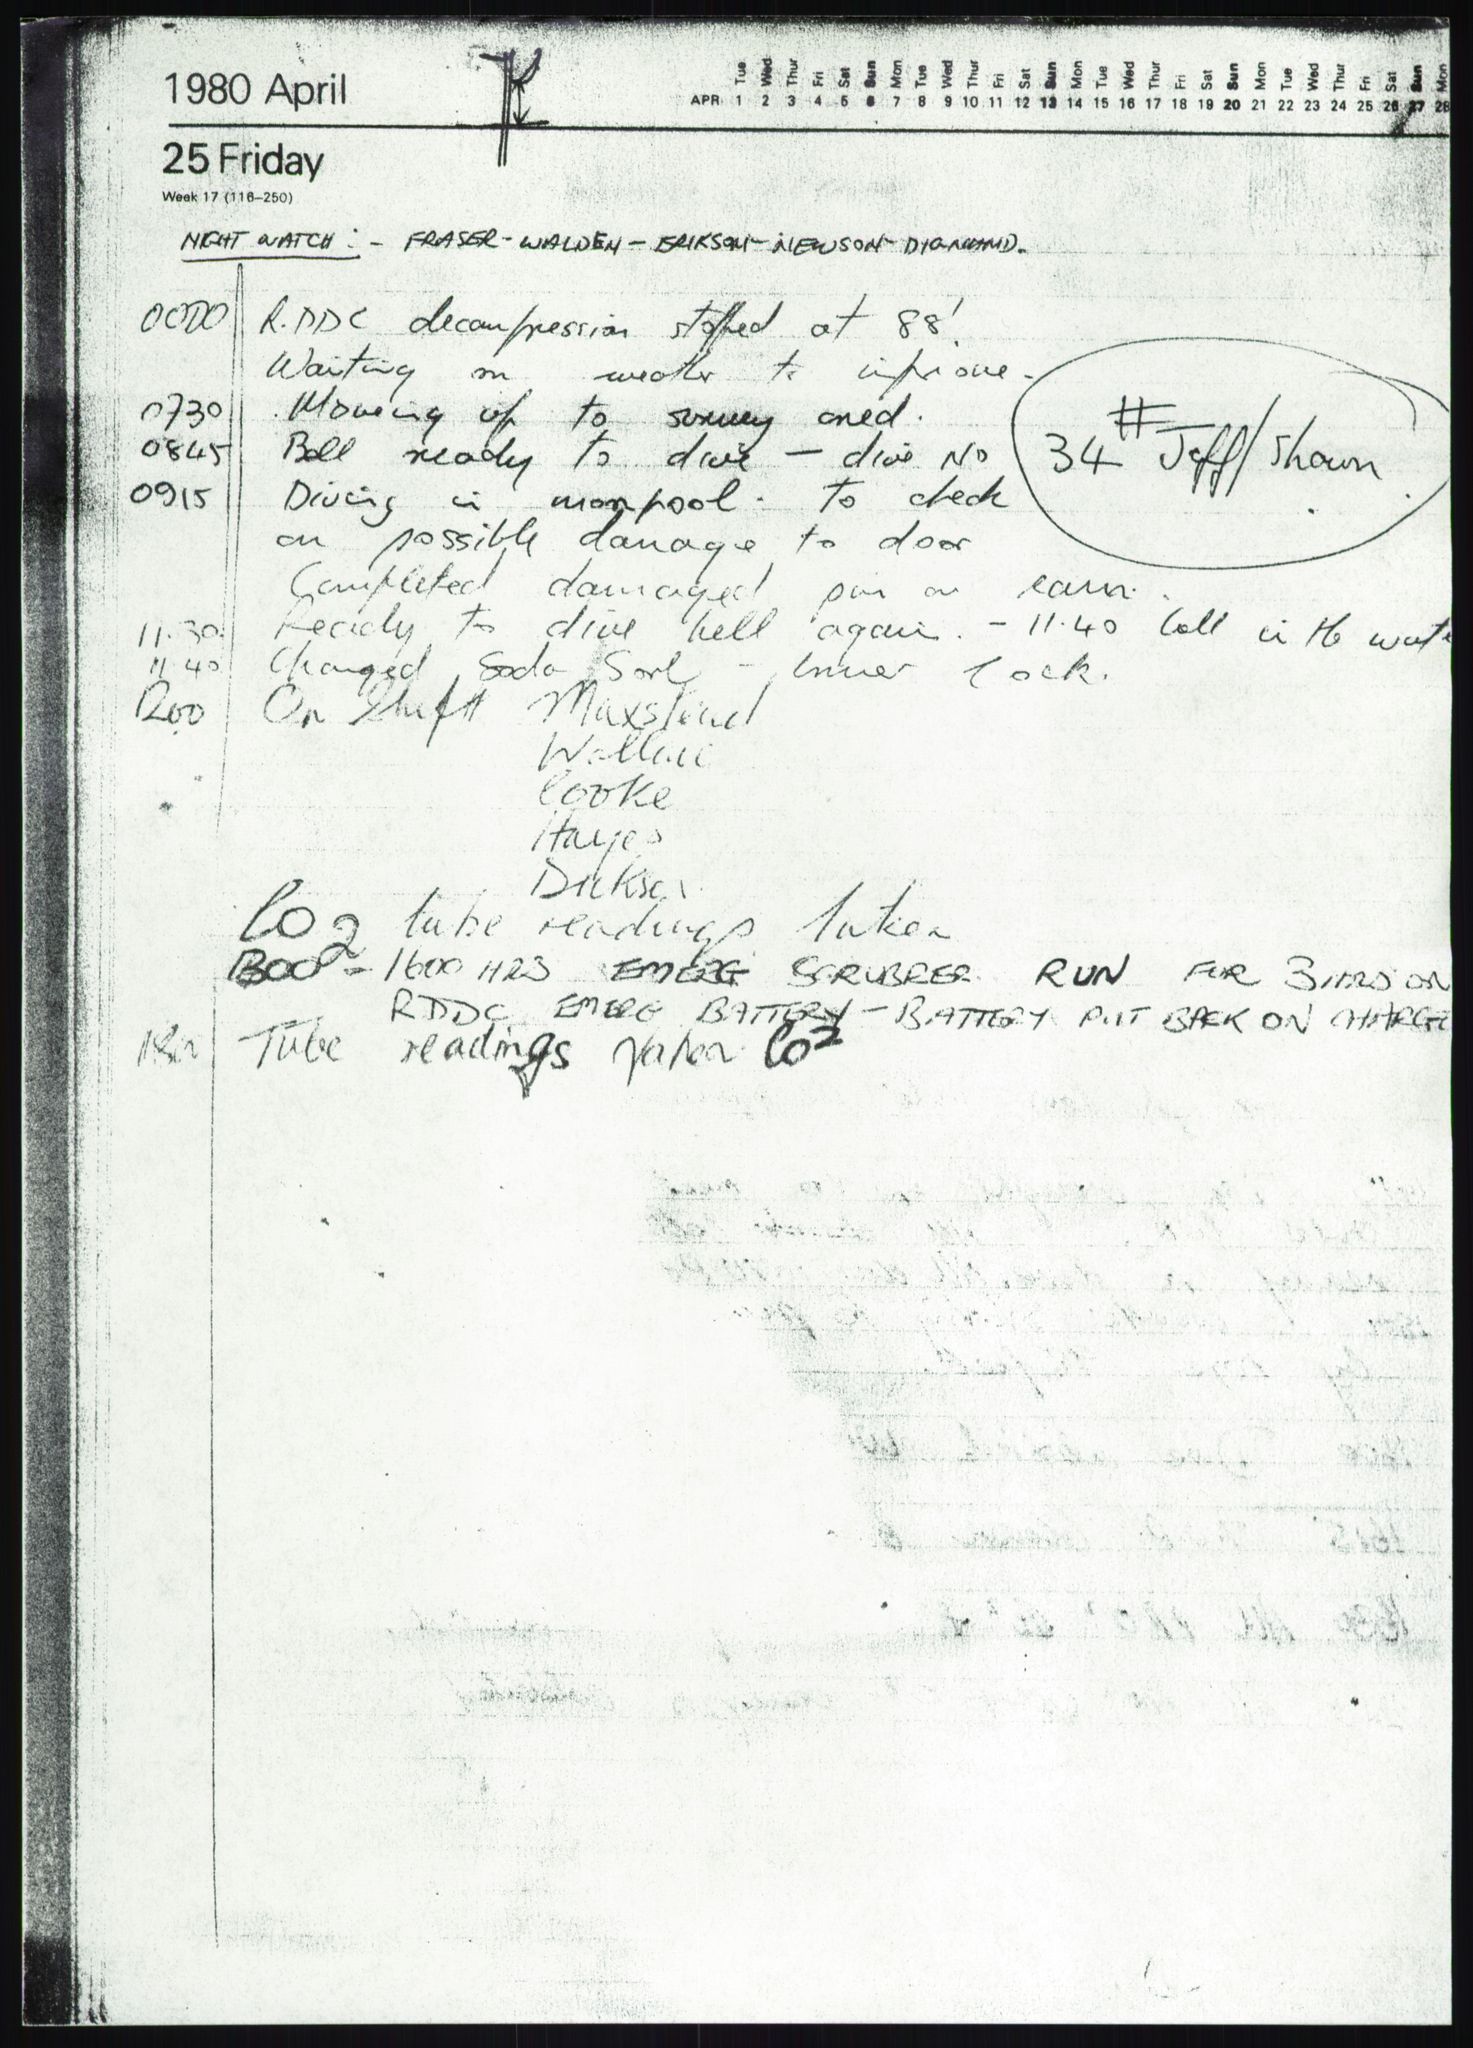 1980 April
Tue Wed Thur Fri Sat Sun Mon Tue Wed Thur Fri Sat Sun Mon Tue Wed Thur Fri Sat Sun Mon Tue Wed Thur Fri Sat Sun Mon
APR 1 2 3 4 5 6 7 8 9 10 11 12 13 14 15 16 17 18 19 20 21 22 23 24 25 26 27 28
25 Friday
Week 17 (116–250)
NIGHT WATCH :- FRASER - WALDEN - ERIKSON - NEWSON - DIAMOND.
0000 R.DDC decompression stopped at 88'
Waiting on weather to improve.
0730 Moving up to survey
0845 Bell ready to dive - dive No 34 # Jeff/Shawn
0915 Diving in moonpool. to check
on possible damage to door
Completed damaged pin on
11.30 Ready to dive bell again. - 11.40 bell in the wate
11.40 Changed Soda Sorb - inner lock.
1200 On Shift Maxstead
Wallace
Cooke
Hayes
Dickson
CO2 tube readings taken
1300 - 1600 HRS EMERG SCRUBBER RUN FOR 3 HRS ON
RDDC EMERG BATTERY - BATTERY PUT BACK ON CHARGE
Tube readings taken CO2